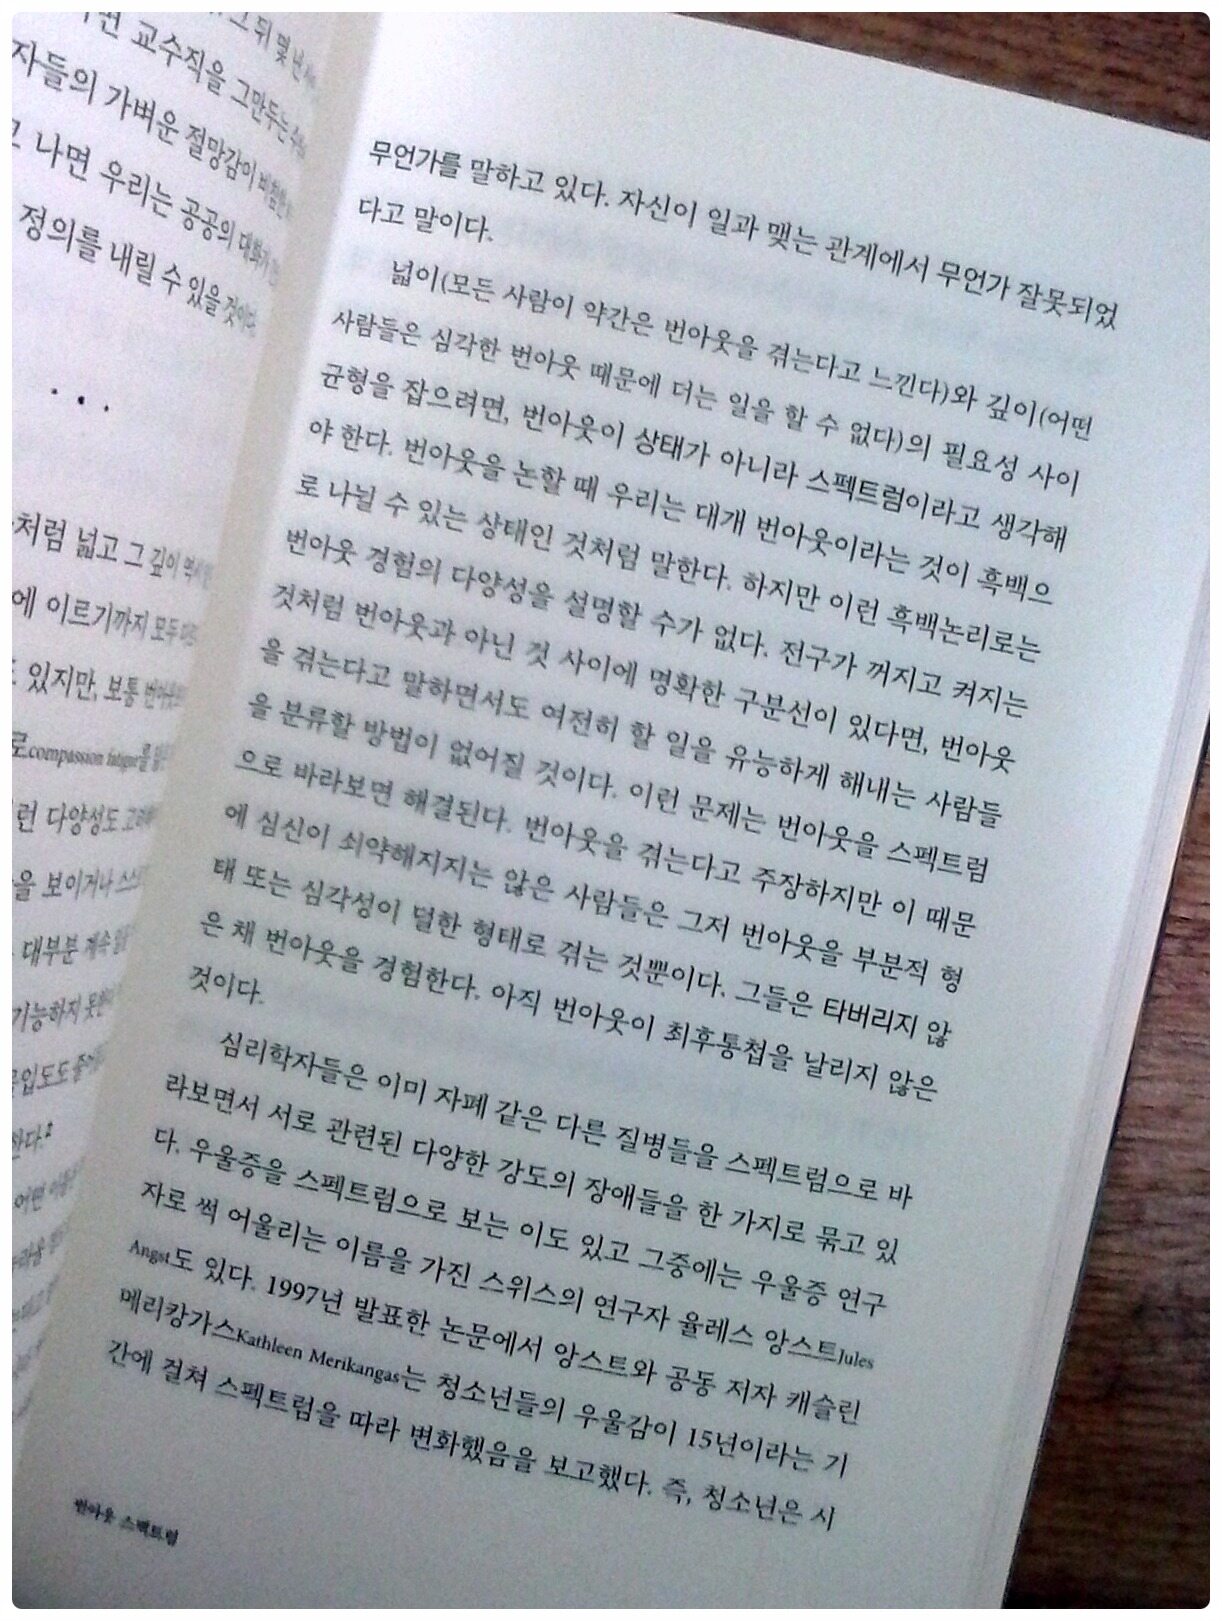 교수직을 그만두는
자들의 가벼운 절망감이
나면 우리는 공공의 대화가
정의를 내릴 수 있을 것이다.
...
처럼 넓고 그 깊이 역시
에 이르기까지 모두
있지만, 보통
로compassion fatigue를
런 다양성도
을 보이거나
대부분 계속
기능하지
무언가를 말하고 있다. 자신이 일과 맺는 관계에서 무언가 잘못되었
다고 말이다.
넓이(모든 사람이 약간은 번아웃을 겪는다고 느낀다)와 깊이(어떤
사람들은 심각한 번아웃 때문에 더는 일을 할 수 없다)의 필요성 사이
균형을 잡으려면, 번아웃이 상태가 아니라 스펙트럼이라고 생각해
야 한다. 번아웃을 논할 때 우리는 대개 번아웃이라는 것이 흑백으
로 나뉠 수 있는 상태인 것처럼 말한다. 하지만 이런 흑백논리로는
번아웃 경험의 다양성을 설명할 수가 없다. 전구가 꺼지고 켜지는
것처럼 번아웃과 아닌 것 사이에 명확한 구분선이 있다면, 번아웃
을 겪는다고 말하면서도 여전히 할 일을 유능하게 해내는 사람들
을 분류할 방법이 없어질 것이다. 이런 문제는 번아웃을 스펙트럼
으로 바라보면 해결된다. 번아웃을 겪는다고 주장하지만 이 때문
에 심신이 쇠약해지지는 않은 사람들은 그저 번아웃을 부분적 형
태 또는 심각성이 덜한 형태로 겪는 것뿐이다. 그들은 타버리지 않
은 채 번아웃을 경험한다. 아직 번아웃이 최후통첩을 날리지 않은
것이다.
심리학자들은 이미 자폐 같은 다른 질병들을 스펙트럼으로 바
라보면서 서로 관련된 다양한 강도의 장애들을 한 가지로 묶고 있
다. 우울증을 스펙트럼으로 보는 이도 있고 그중에는 우울증 연구
자로 썩 어울리는 이름을 가진 스위스의 연구자 율레스 앙스트Jules
Angst도 있다. 1997년 발표한 논문에서 앙스트와 공동 저자 캐슬린
메리캉가스Kathleen Merikangas는 청소년들의 우울감이 15년이라는 기
간에 걸쳐 스펙트럼을 따라 변화했음을 보고했다. 즉, 청소년은 시
번아웃 스펙트럼